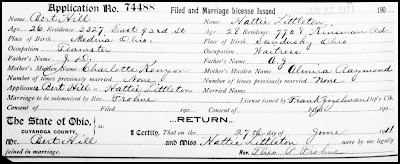 Application No. 74488 Filed and Marriage License Issued JUN 22 1911 190
Name Bert Hill Name Hattie Littleton
Age 26 Residence 3327 East 93rd St Age 28 Residence 7708 Kinsman Rd
Place of Birth Medina Ohio Place of Birth Sandusky Ohio
Occupation Teamster Occupation Waitress
Father's Name J. D. Father's Name A. J.
Mother's Maiden Name Charlotte Kenyon Mother's Maiden Name Almira Raymond
Number of times previously married None Number of times previously married None
Applicants Bert Hill - Hattie Littleton Married Name
Marriage to be solemnized by Rev. Frohne License issued by Frank Zizelman Dep'y Clk
Consent of Filed 190 Consent of Filed 190
RETURN
The State of Ohio,
CUYAHOGA COUNTY
I Certify, That on the 27th day of June 1911
Mr. Bert Hill and Miss Hattie Littleton were by me legally
joined in marriage. Rev. Theo. P. Frohne